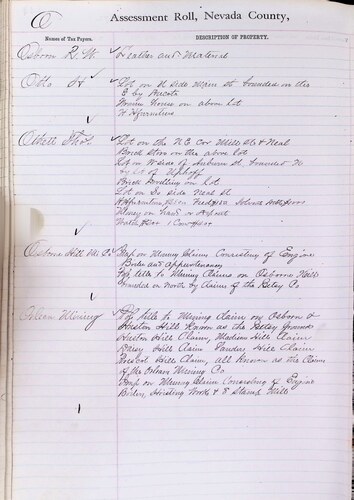 O
Assessment Roll, Nevada County,
Names of Tax Payers.
DESCRIPTION OF PROPERTY.
Osborn R. W. Leather and Material
Otto A Lot on N side Main st bounded on the
E by
Frame House on above Lot
H Furniture
Othett Thos. Lot on the N. E. Cor Mill Sts & Neal
Brick Store on the above Lot
Lot on W side of Auburn st. bounded N
by Lot of
Brick Dwelling on Lot
Lot on So side Neal st
H Furniture
Money on hand or
1 Cow
Osborn Hill Mg Co Imp on Mining Claims Consisting of Engine
Boiler and Appurtenances
Pos title to Mining Claims on Osborne Hill
bounded on North by Claims of the Betsy Co
Orleans Mining Pos title to Mining Claim on Osborn &
Huston Hill Known as the Betsy Grounds
Huston Hill Claim, Madison Hill Claim
Hill Claim Hill Claim
Hill Claim, all Known as the Claims
of the Orleans Mining Co
Imp on Mining Claim Consisting of Engine
Boiler, Hoisting Works & 8 Stamp Mill